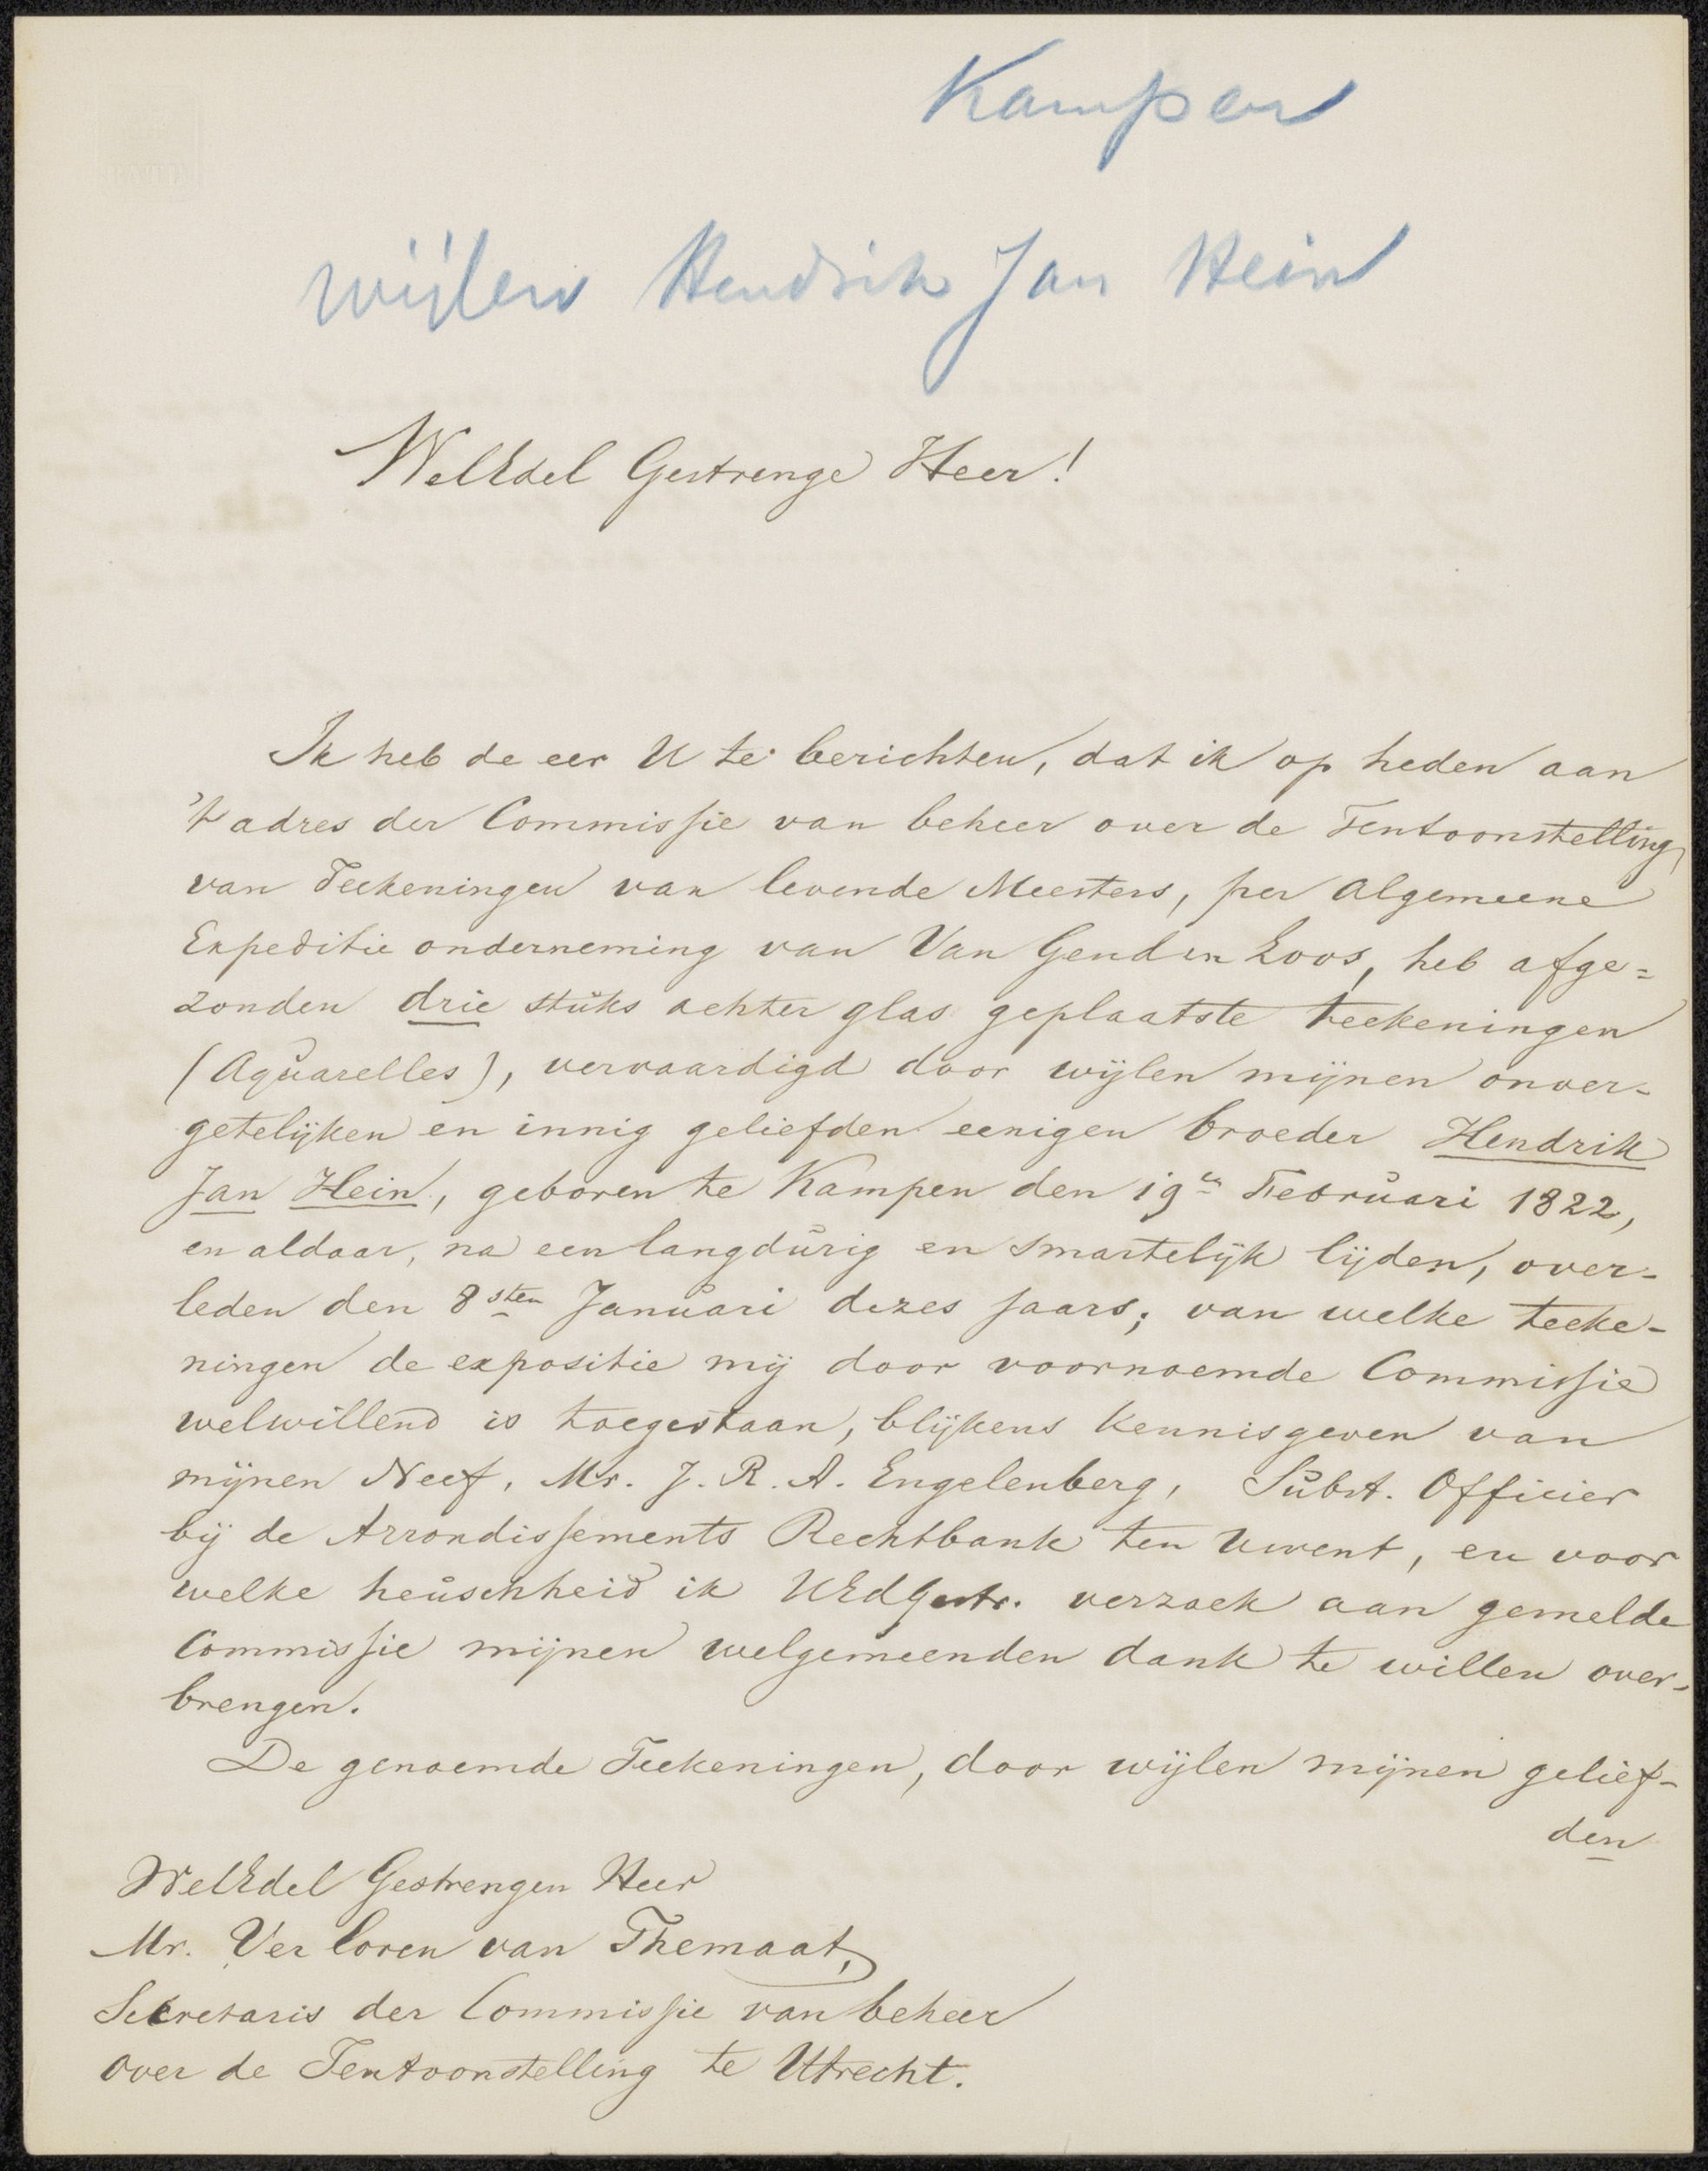 Kampen
wijlen Hendrik Jan Hein
WelEdel Gestrenge Heer!
Ik heb de eer U te berichten, dat ik op heden aan
't adres der Commissie van beheer over de Tentoonstelling
van Teekeningen van levende Meesters, per Algemeene
Expeditie onderneming van Van Gend en Loos, heb afge=
zonden drie stuks achter glas geplaatste teekeningen
(Aquarelles), vervaardigd door wijlen mijnen onver-
getelijken en innig geliefden eenigen broeder Hendrik
Jan Hein, geboren te Kampen den 19en Februari 1822,
en aldaar, na een langdurig en smartelijk lijden, over-
leden den 8sten Januari dezes jaars; van welke teeke-
ningen de expositie mij door voornoemde Commissie
welwillend is toegestaan, blijkens kennisgeven van
mijnen Neef, Mr. J. R. A. Engelenberg, Subst. Officier
bij de Arrondissements Rechtbank ten Uwent, en voor
welke heuschheid ik UEdGestr. verzoek aan gemelde
Commissie mijnen welgemeenden dank te willen over-
brengen.
De genoemde Teekeningen, door wijlen mijnen gelief-
den
WelEdel Gestrengen Heer
Mr. Ver Loren van Themaat,
Secretaris der Commissie van beheer
over de Tentoonstelling te Utrecht.